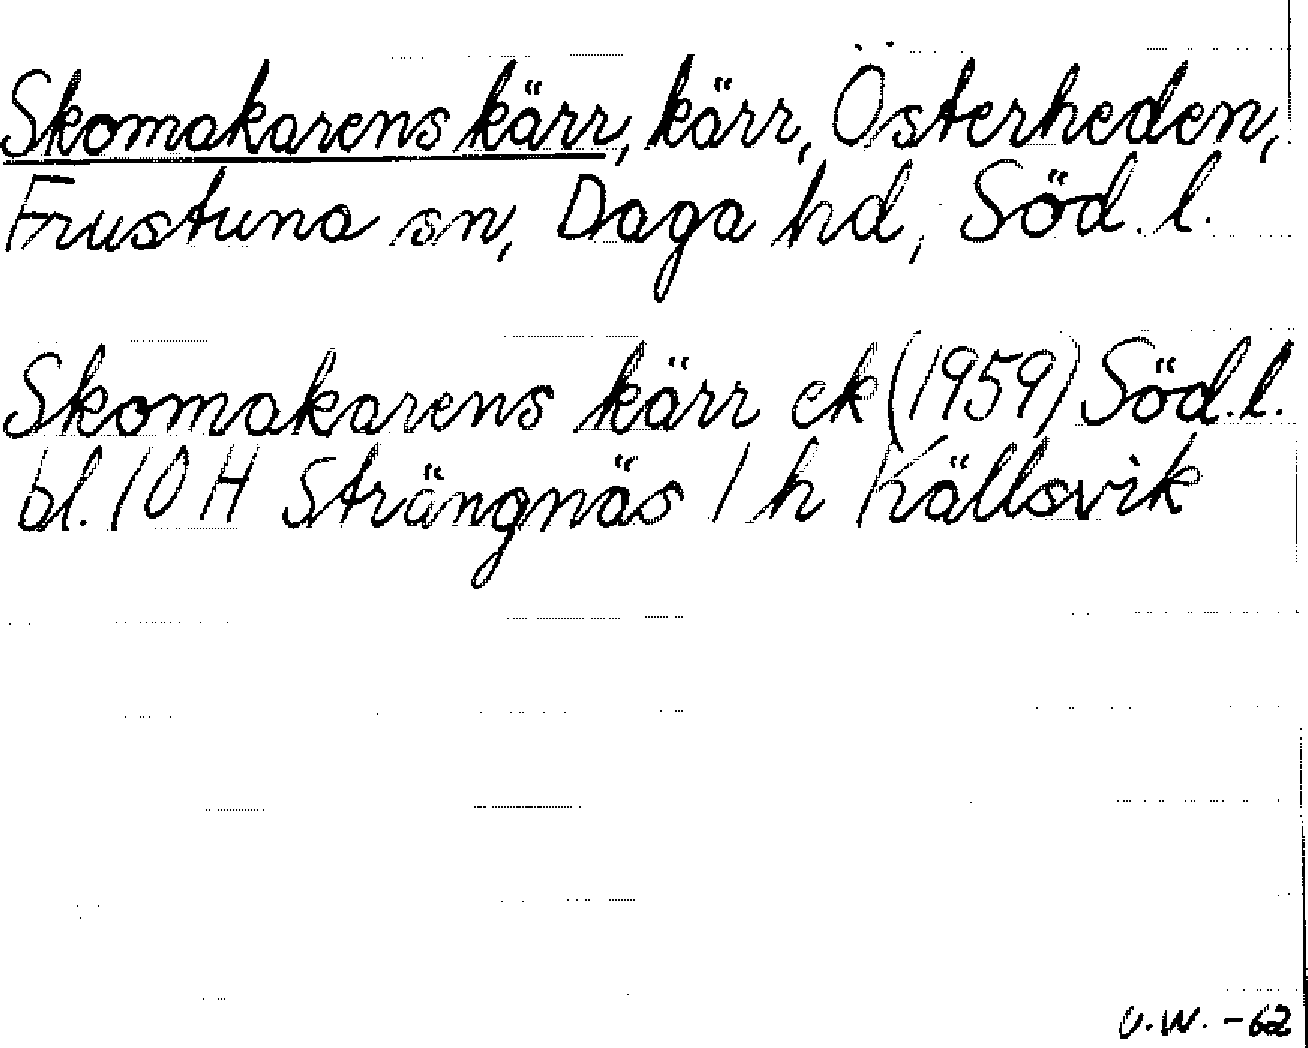 Skomakarens kärr, kärr, Österheden,
Frustuna sn, Daga hd, Söd. l.
Skomakarens kärr ek (1959) Söd. l.
bl. 10 H Strängnäs 1 h Källsvik
U.W. -62